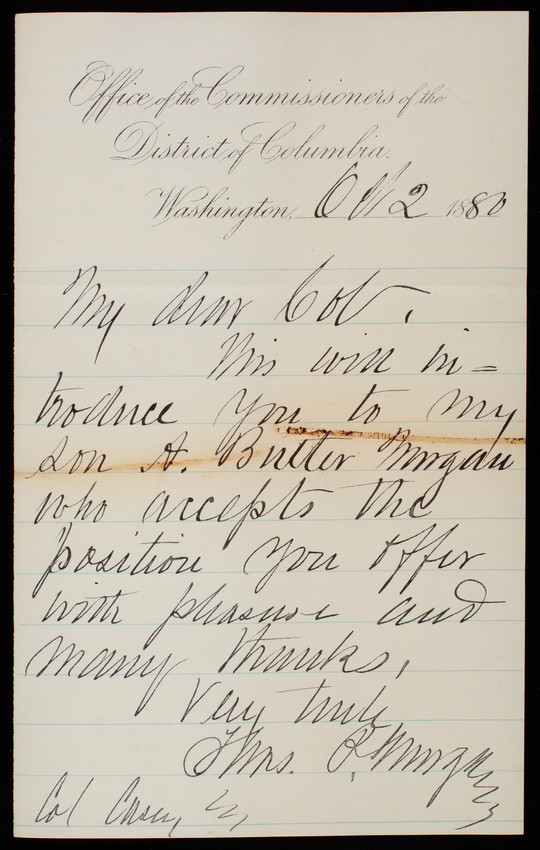 Office of the Commissioners of the
District of Columbia.
Washington, Oct 2 1880
My dear Col.
This will in=
troduce you to my
son A. Butler Morgan
who accepts the
position you offer
with pleasure and
many thanks,
Very truly
Thos. P. Morgan
Col Casey